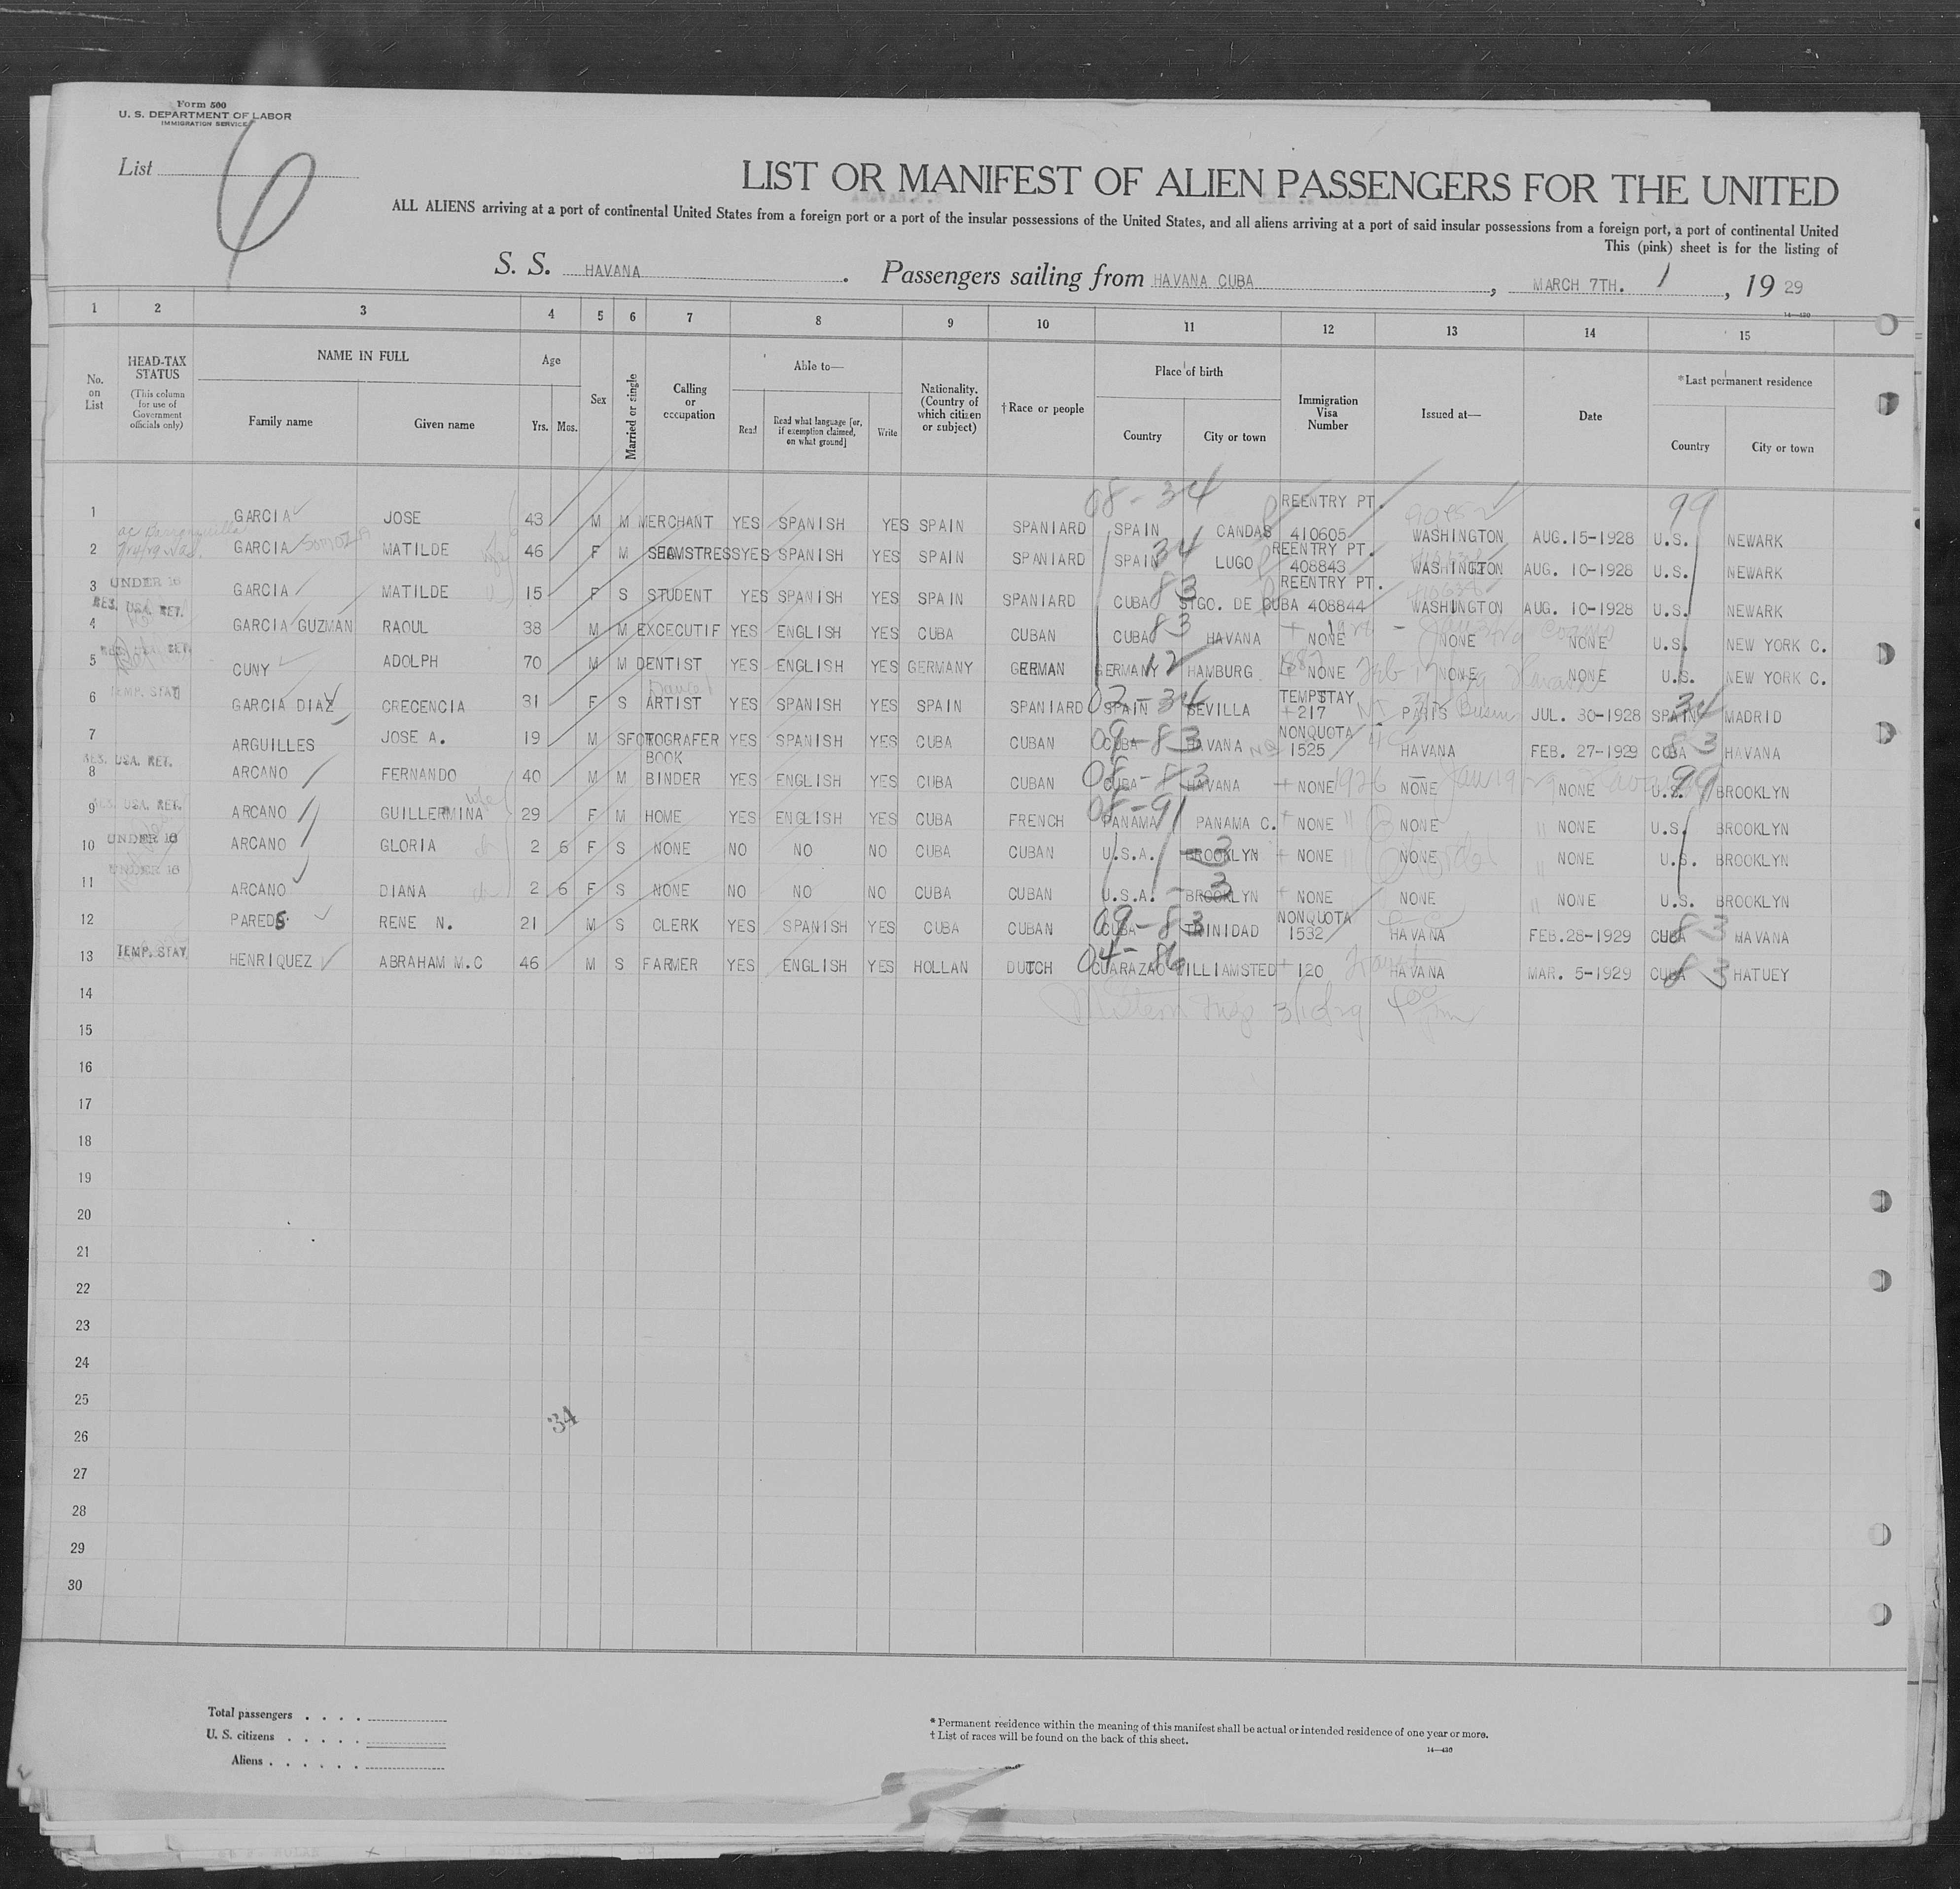 Form 500
U. S. DEPARTMENT OF LABOR
IMMIGRATION SERVICE
List
6
LIST OR MANIFEST OF ALIEN PASSENGERS FOR THE UNITED
ALL ALIENS arriving at a port of continental United States from a foreign port or a port of the insular possessions of the United States, and all aliens arriving at a port of said insular possessions from a foreign port, a port of continental United
This (pink) sheet is for the listing of
S. S. HAVANA. Passengers sailing from HAVANA CUBA, MARCH 7TH. 1, 19 29
14—430
1 2 3 4 5 6 7 8 9 10 11 12 13 14 15
No. on List
HEAD-TAX STATUS (This column for use of Government officials only)
NAME IN FULL
Family name Given name
Age
Yrs. Mos.
Sex
Married or single
Calling or occupation
Able to—
Read Read what language [or, if exemption claimed, on what ground] Write
Nationality. (Country of which citizen or subject)
† Race or people
Place of birth
Country City or town
Immigration Visa Number
Issued at—
Date
*Last permanent residence
Country City or town
1 GARCIA JOSE 43 M M MERCHANT YES SPANISH YES SPAIN SPANIARD 08-34 SPAIN CANDAS REENTRY PT. 410605 WASHINGTON AUG.15-1928 99 U.S. NEWARK
2 GARCIA SOMOZA MATILDE 46 F M SEAMSTRESS YES SPANISH YES SPAIN SPANIARD SPAIN 34 LUGO REENTRY PT. 408843 WASHINGTON AUG. 10-1928 U.S. NEWARK
3 UNDER 16 GARCIA MATILDE 15 F S STUDENT YES SPANISH YES SPAIN SPANIARD CUBA 83 STGO. DE CUBA REENTRY PT. 408844 WASHINGTON AUG. 10-1928 U.S. NEWARK
4 RES. USA. RET. GARCIA GUZMAN RAOUL 38 M M EXCECUTIF YES ENGLISH YES CUBA CUBAN CUBA 83 HAVANA NONE NONE NONE U.S. NEW YORK C.
5 RES. USA. RET. CUNY ADOLPH 70 M M DENTIST YES ENGLISH YES GERMANY GERMAN GERMANY 12 HAMBURG NONE NONE NONE U.S. NEW YORK C.
6 TEMP. STAY GARCIA DIAZ CRECENCIA 31 F S ARTIST YES SPANISH YES SPAIN SPANIARD SPAIN 34 SEVILLA TEMPSTAY +217 PARIS JUL. 30-1928 SPAIN 34 MADRID
7 ARGUILLES JOSE A. 19 M S FOTOGRAFER YES SPANISH YES CUBA CUBAN 09-83 CUBA HAVANA NONQUOTA 1525 HAVANA FEB. 27-1929 CUBA 83 HAVANA
8 RES. USA. RET. ARCANO FERNANDO 40 M M BOOK BINDER YES ENGLISH YES CUBA CUBAN 08-83 CUBA HAVANA + NONE 1926 NONE NONE U.S. 99 BROOKLYN
9 RES. USA. RET. ARCANO GUILLERMINA wife 29 F M HOME YES ENGLISH YES CUBA FRENCH 08-91 PANAMA PANAMA C. + NONE " NONE " NONE U.S. BROOKLYN
10 UNDER 16 ARCANO GLORIA ch 2 6 F S NONE NO NO NO CUBA CUBAN U.S.A. BROOKLYN 3 + NONE " NONE " NONE U.S. BROOKLYN
11 UNDER 16 ARCANO DIANA ch 2 6 F S NONE NO NO NO CUBA CUBAN U.S.A. BROOKLYN 3 + NONE NONE " NONE U.S. BROOKLYN
12 PAREDS RENE N. 21 M S CLERK YES SPANISH YES CUBA CUBAN 09-83 CUBA TRINIDAD NONQUOTA 1532 HAVANA FEB.28-1929 CUBA 83 HAVANA
13 TEMP. STAY HENRIQUEZ ABRAHAM M.C 46 M S FARMER YES ENGLISH YES HOLLAN DUTCH 04-86 CUARAZAO WILLIAMSTED + 120 HAVANA MAR. 5-1929 CUBA 83 HATUEY
14
15
16
17
18
19
20
21
22
23
24
25
34
26
27
28
29
30
Total passengers . . . .
U. S. citizens . . . . .
Aliens . . . . . .
* Permanent residence within the meaning of this manifest shall be actual or intended residence of one year or more.
† List of races will be found on the back of this sheet.
14—430